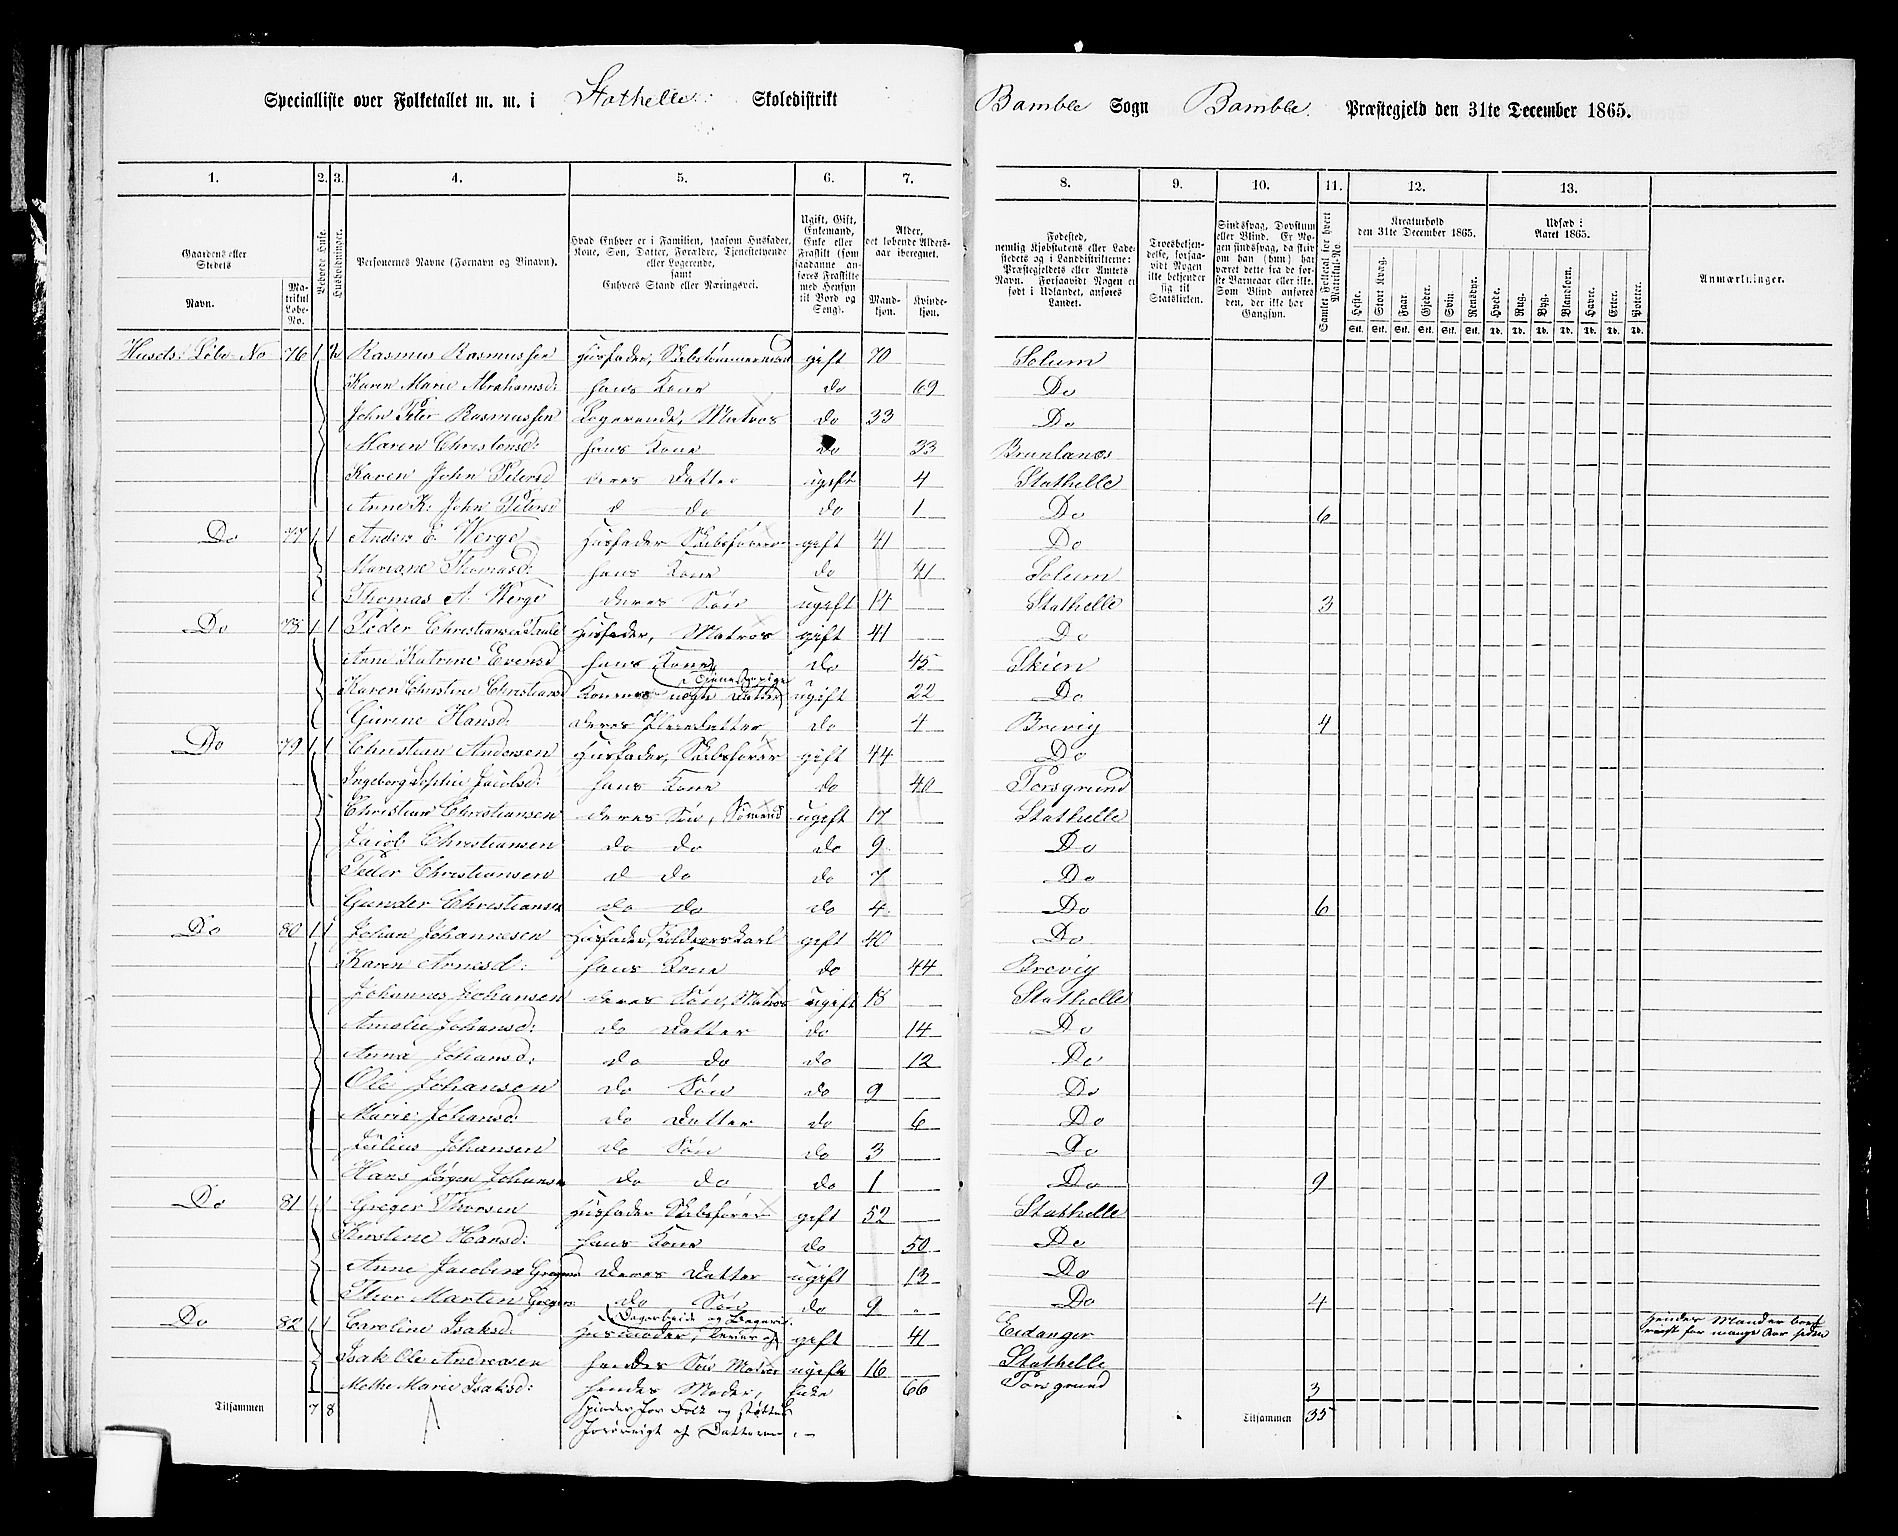 Specialliste over Folketallet m. m. i Stathelle Skoledistrikt Bamble Sogn Bamble Præstegjeld den 31te December 1865.
1. 2. 3. 4. 5. 6. 7. 8. 9. 10. 11. 12. 13.
Gaardens eller Stedets Navn. Matrikul Løbe-No. Beboede Huse. Husholdninger. Personernes Navne (Fornavn og Binavn). Hvad Enhver er i Familien, saasom Husfader, Kone, Søn, Datter, Forældre, Tjenestetyende eller Logerende, samt Enhvers Stand eller Næringsvei. Ugift, Gift, Enkemand, Enke eller Fraskilt (som saadanne anføres Fraskilte med Hensyn til Bord og Seng). Alder, det løbende Alders-aar iberegnet. Mand-kjøn. Kvinde-kjøn.
Fødested, nemlig Kjøbstadens eller Ladestedets og i Landdistrikterne: Præstegjeldets eller Amtets Navn. Forsaavidt Nogen er født i Udlandet, anføres Landet. Troesbekjendelse, forsaavidt Nogen ikke bekjender sig til Statskirken. Sindssvag, Døvstum eller Blind. Er Nogen sindssvag, da skrives om han (hun) har været dette fra de første Barneaar eller ikke. Som Blind anføres den, der ikke har Gangsyn. Samlet Folketal for hvert Matrikul-No. Kreaturhold den 31te December 1865. Udsæd i Aaret 1865. Anmærkninger.
Heste. Stort Kvæg. Faar. Gjeder. Svin. Rensdyr. Hvede. Rug. Byg. Blandkorn. Havre. Erter. Poteter.
Husets Løbe No 76 1 2 Rasmus Rasmussen Husfader, Skibstømmermand gift 70 Solum
Karen Marie Abrahamsd: hans Kone do 69 Do
John Peter Rasmussen Logerende, Matros do 33 Do
Maren Christensd: hans Kone do 33 Brunlanes
Karen John Petersd deres Datter ugift 4 Stathelle
Anne K. John Petersd d do do 1 Do 6
Do 77 1 1 Anders E. Werge Husfader Skibsfører gift 41 Do
Mariane Thomasd: hans Kone do 41 Solum
Thomas A. Werge deres Søn ugift 14 Stathelle 3
Do 78 1 1 Peder Christiansen Husfader, Matros gift 41 Do
Anne Katrine Evensd hans Kone do 45 Skien
Karen Christine Christiansd Konens uægte Datter ugift 22 Do
Gurine Hansd: deres Pleiedatter, do 4 Brevig 4
Do 79 1 1 Christian Andersen Husfader, Skibsfører gift 44 Do
Ingeborg Sophie Jacobsd: hans Kone do 40 Porsgrund
Christian Christiansen deres Søn, Sømand ugift 17 Stathelle
Jacob Christiansen do do do 9 Do
Peder Christiansen d do do 7 Do
Gunder Christiansen do do do 4 Do 6
Do 80 1 1 Johan Johannesen Husfader, gift 40 Do
Karen Arnesd: hans Kone do 44 Brevig
Johannes Johansen deres Søn, Matros ugift 18 Stathelle
Amalie Johansd: do Datter do 14 Do
Anna Johansd: do do do 12 Do
Ole Johansen do Søn do 9 Do
Marie Johansd do Datter do 6 Do
Julius Johansen do Søn do 3 Do
Hans Jørgen Johansen do do do 1 Do 9
Do 81 1 1 Greger Thorsen Husfader Skibsfører gift 52 Stathelle
Kirstine Hansd: hans Kone do 50 Do
Anne Jacobine Gregersd deres Datter ugift 13 Do
Thor Martin Gregers: do Søn do 9 Do 4
Do 82 1 1 Caroline Isaksd: Husmoder, gift 41 Eidanger Hendes Mand er bort
reist for mange Aar siden
Isak Ole Andreasen hendes Søn Matros ugift 16 Stathelle
Methe Marie Isaksd: hendes Moder, Enke 66 Porsgrund 3
Tilsammen 7 8 Spinder for Folk og støttes Tilsammen 35
forøvrigt af Datteren.